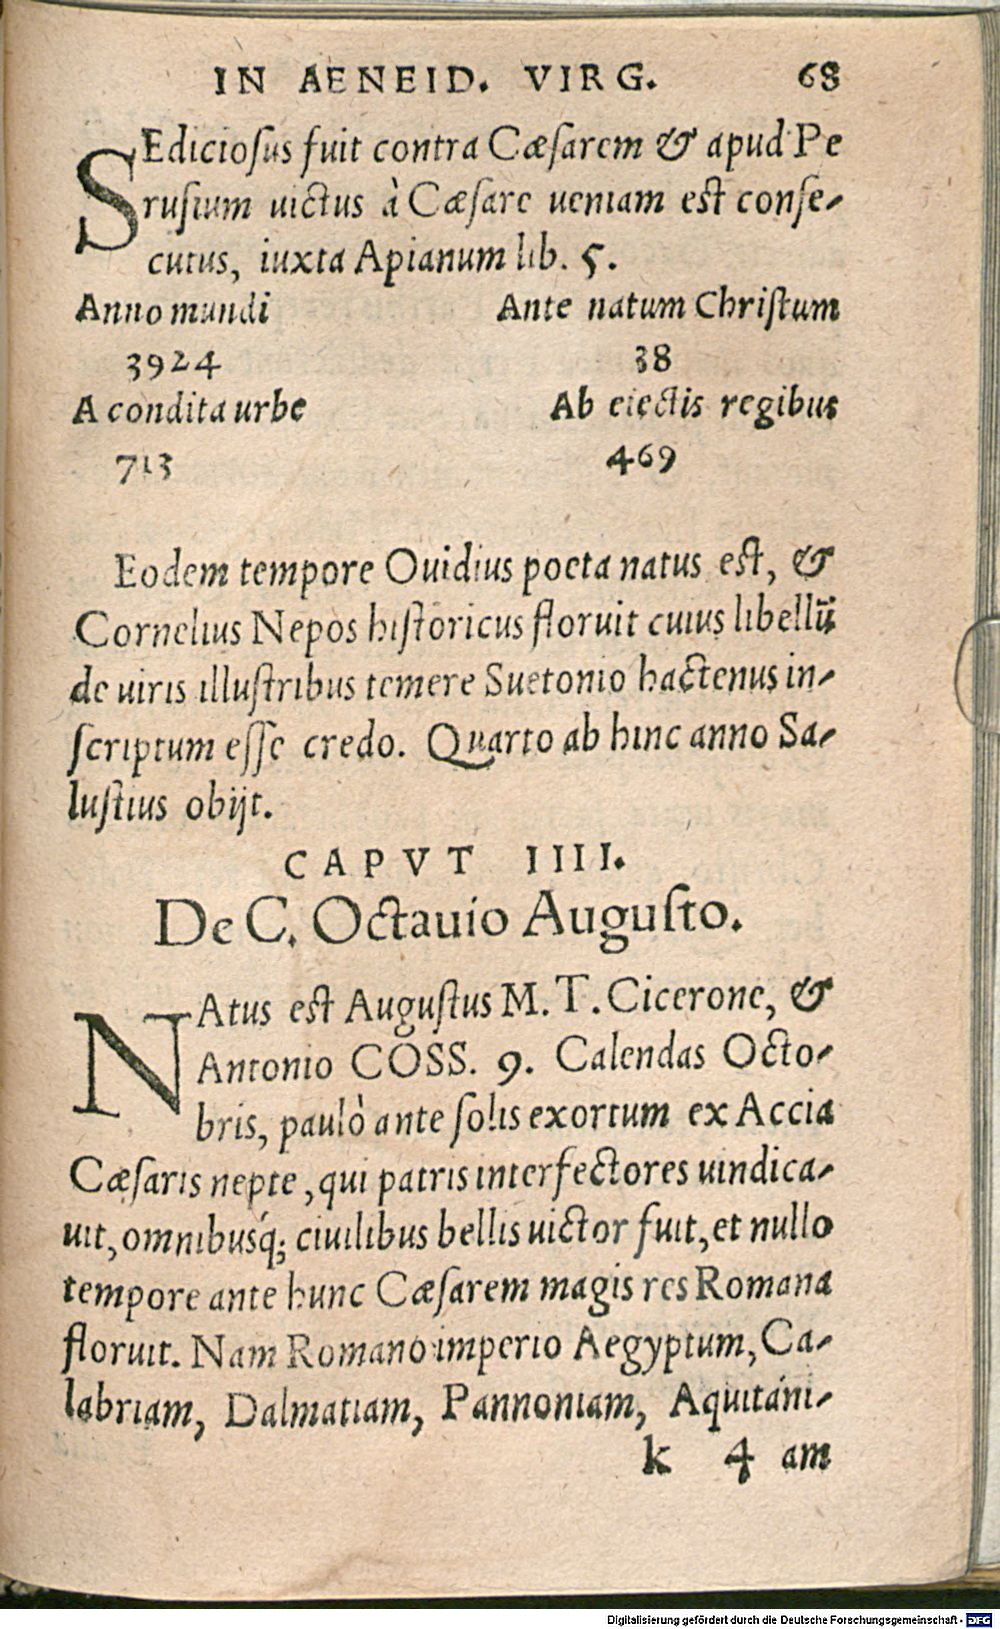 IN AENEID. VIRG. 68
SEdiciosus fuit contra Cæsarem & apud Pe
rusium uictus à Cæsare ueniam est conse-
cutus, iuxta Apianum lib. 5.
Anno mundi Ante natum Christum
3924 38
A condita urbe Ab eiectis regibus
713 469
Eodem tempore Ouidius poeta natus est, &
Cornelius Nepos historicus floruit cuius libellū
de uiris illustribus temere Suetonio hactenus in-
scriptum esse credo. Quarto ab hinc anno Sa-
lustius obijt.
CAPVT IIII.
De C. Octauio Augusto.
NAtus est Augustus M. T. Cicerone, &
Antonio COSS. 9. Calendas Octo-
bris, paulò ante solis exortum ex Accia
Cæsaris nepte, qui patris interfectores uindica-
uit, omnibusq́; ciuilibus bellis uictor fuit, et nullo
tempore ante hunc Cæsarem magis res Romana
floruit. Nam Romano imperio Aegyptum, Ca-
labriam, Dalmatiam, Pannoniam, Aquitani-
k 4 am
Digitalisierung gefördert durch die Deutsche Forschungsgemeinschaft - DFG